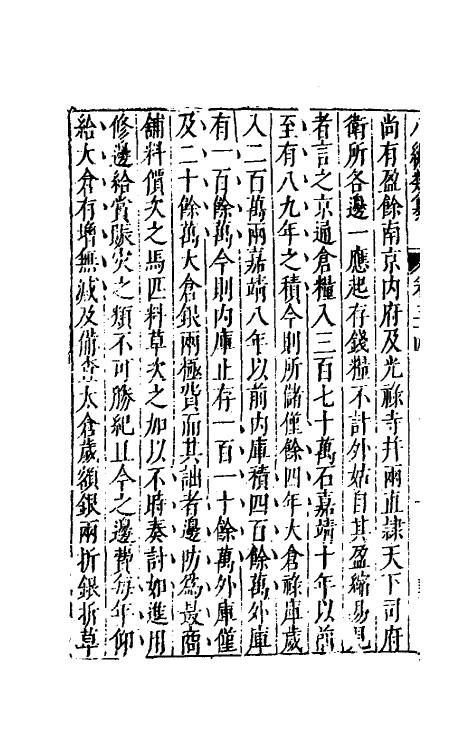 八編類纂 卷三十四
尚有盈餘南京內府及光祿寺幷兩直隸天下司府
衛所各邊一應起存錢糧不計外姑自其盈縮易見
者言之京通倉糧入三百七十萬石嘉靖十年以前
至有八九年之積今則所儲僅餘四年大倉祿庫歲
入二百萬兩嘉靖八年以前內庫積四百餘萬外庫
有一百餘萬今則內庫止存一百一十餘萬外庫僅
及二十餘萬大倉銀兩極費而其詘者邊防爲最商
舖料價次之馬匹料草次之加以不時奏討如進用
修邊給賞賑灾之類不可勝紀且今之邊費每年仰
給大倉有增無減及備查太倉歲額銀兩折銀折草